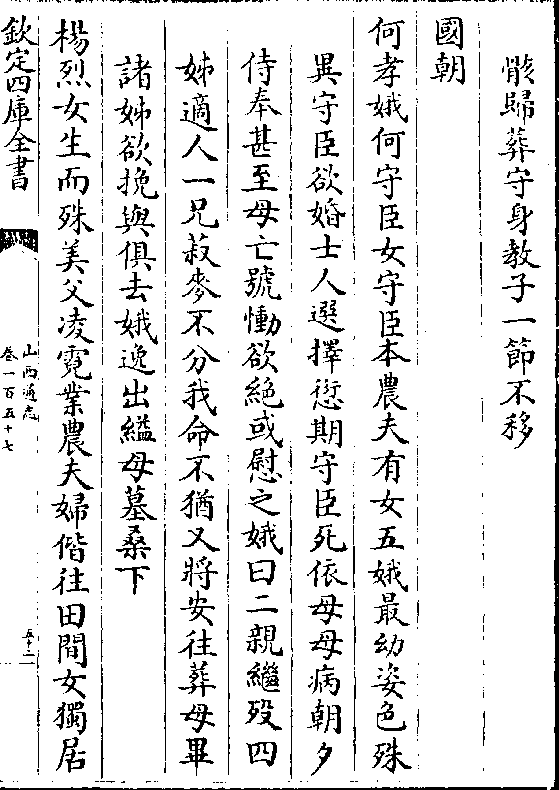 骸歸葬守身教子一節不移
國朝
何孝娥何守臣女守臣本農夫有女五娥最幼姿色殊
異守臣欲婚士人選擇愆期守臣死依母母病朝夕
侍奉甚至母亡號慟欲絶或慰之娥曰二親繼殁四
姊適人一兄菽麥不分我命不猶又將安往葬母畢
諸姊欲挽與俱去娥逸出縊母墓桑下
楊烈女生而殊美父凌霓業農夫婦偕往田間女獨居
欽定四庫全書
山西通志
卷一百五十七
五十二